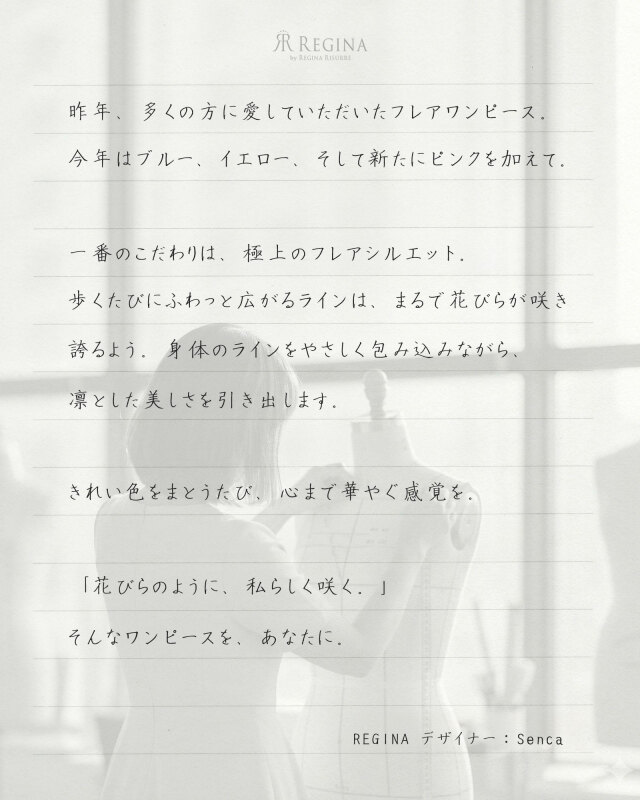 REGINA
by REGINA RISURRE
昨年、多くの方に愛していただいたフレアワンピース.
今年はブルー、イエロー、そして新たにピンクを加えて.
一番のこだわりは、極上のフレアシルエット.
歩くたびにふわっと広がるラインは、まるで花びらが咲き
誇るよう. 身体のラインをやさしく包み込みながら、
凛とした美しさを引き出します.
きれい色をまとうたび、心まで華やぐ感覚を.
「花びらのように、私らしく咲く.」
そんなワンピースを、あなたに.
REGINA デザイナー：Senca